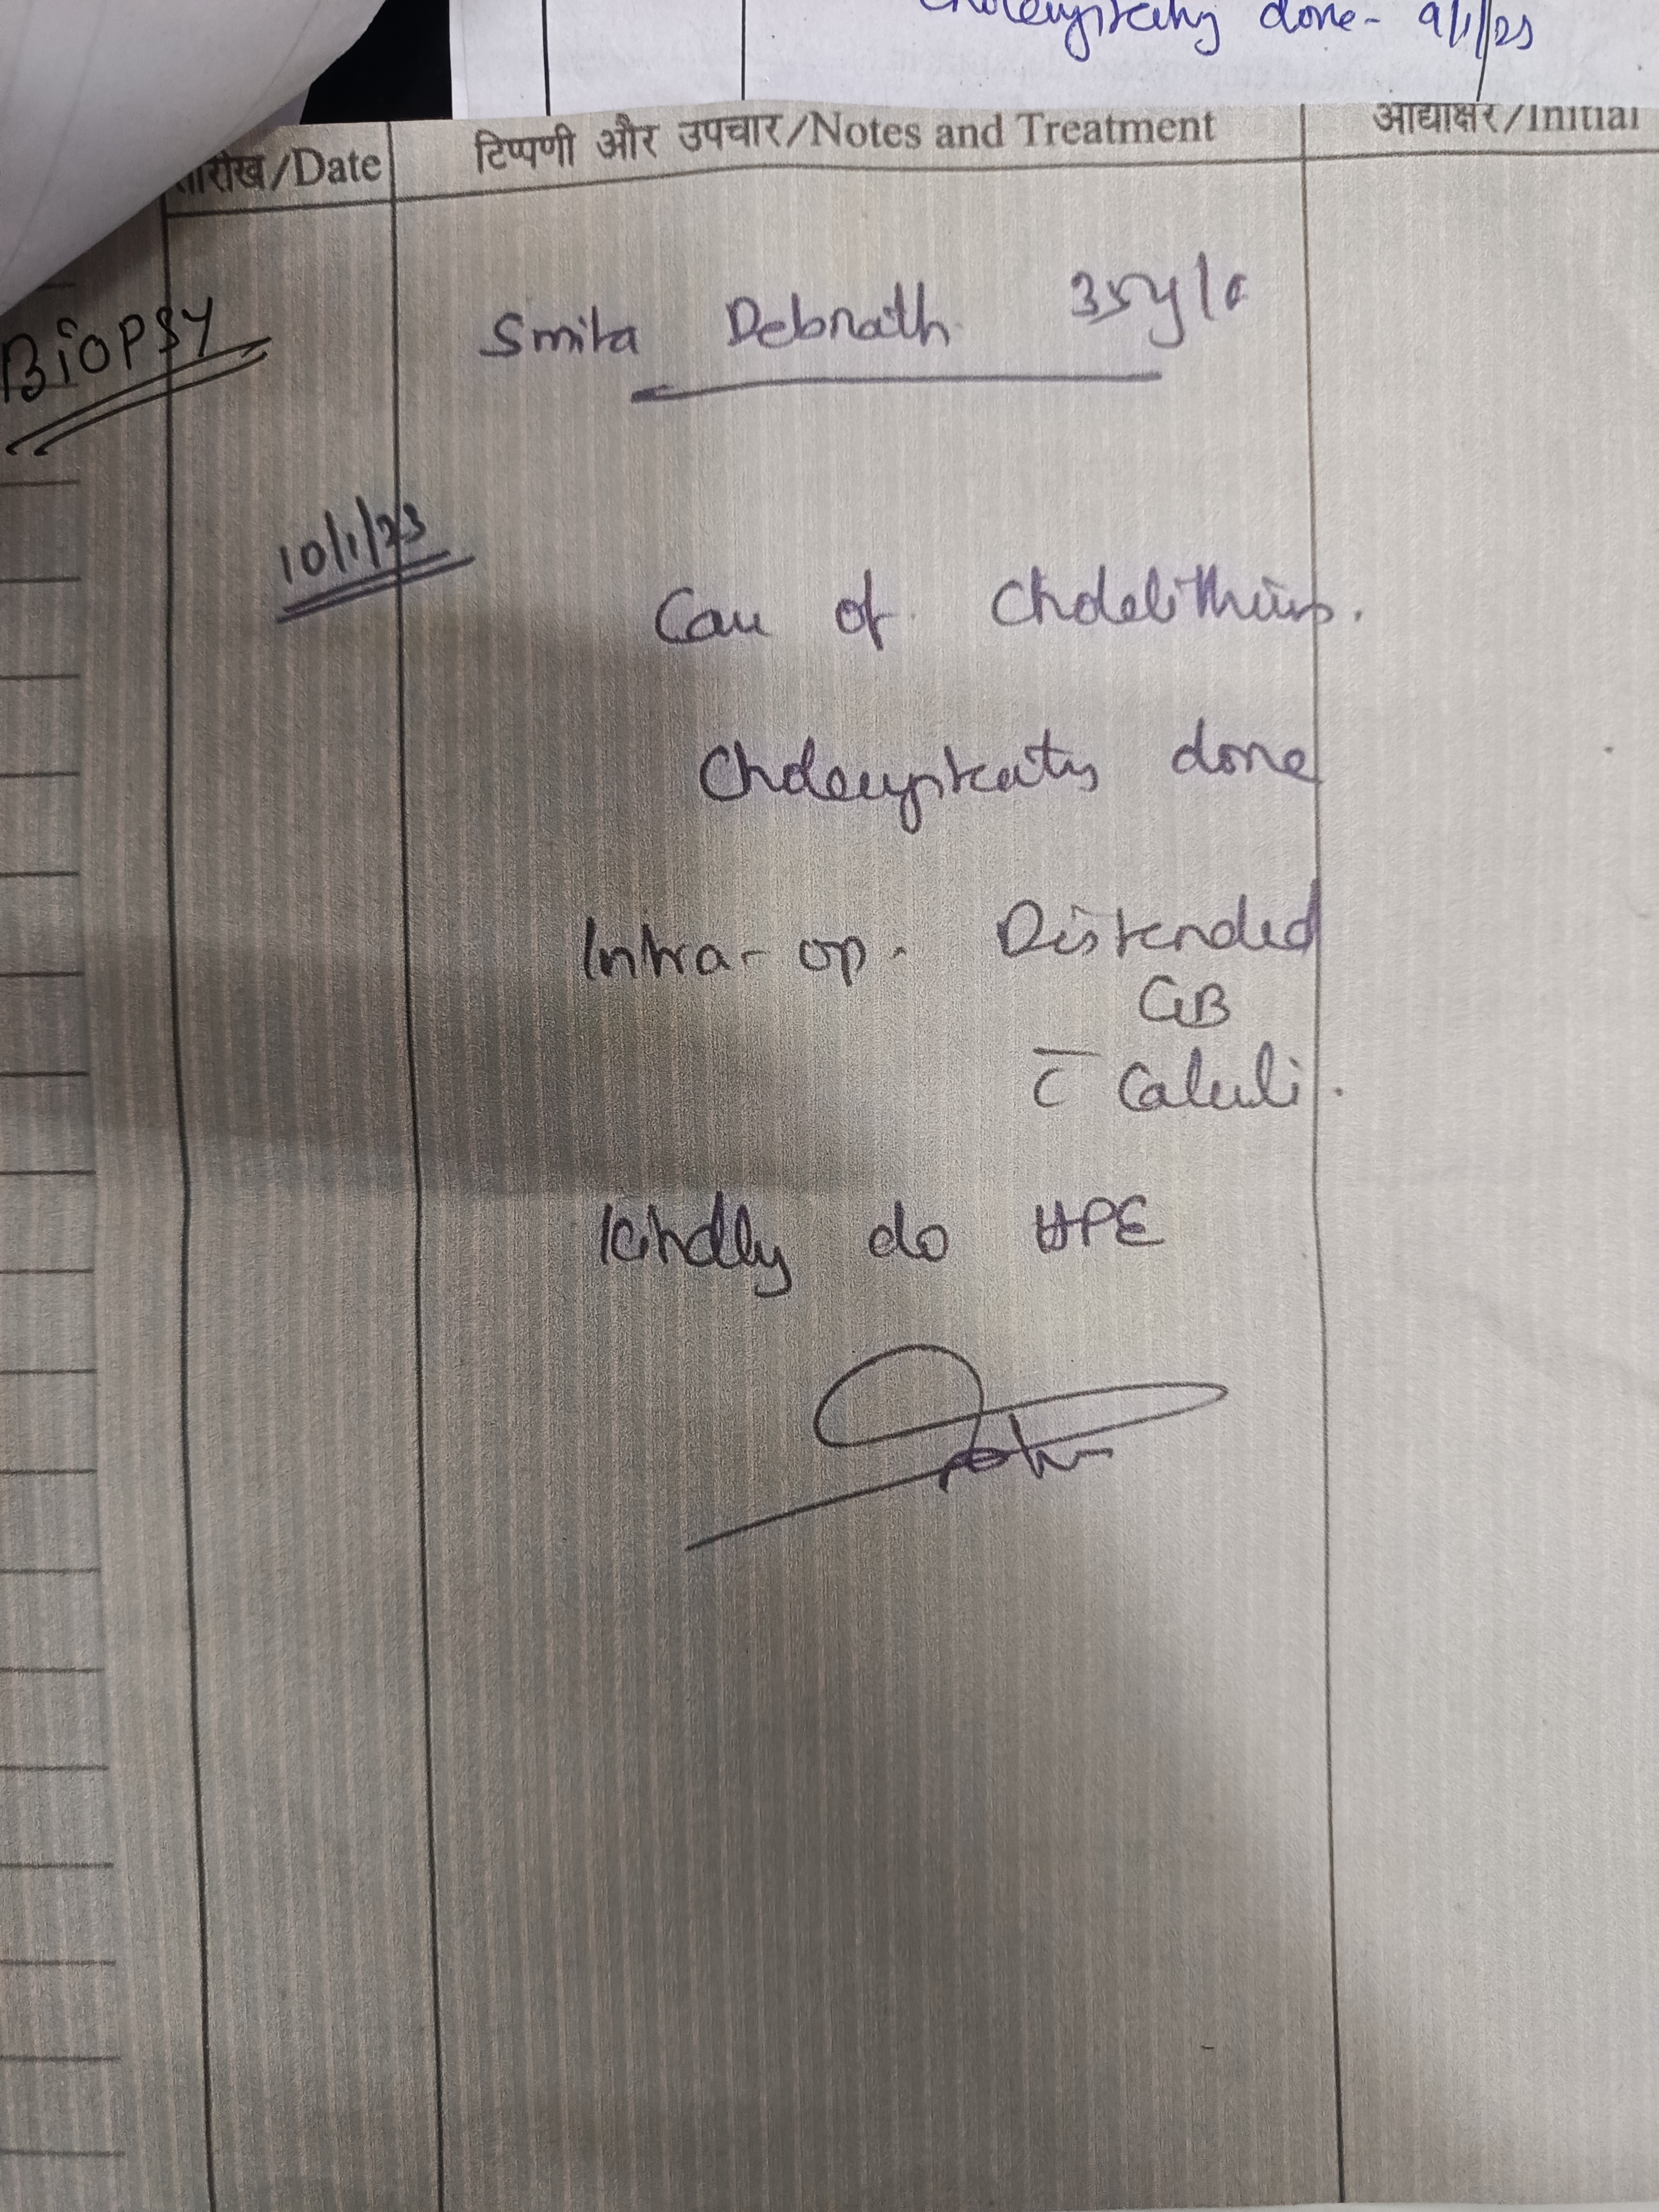 done- 9/1/23
/Date टिप्पणी और उपचार/Notes and Treatment आद्याक्षर/Initial
BIOPSY
Smita Debnath 35y/F
10/1/23
Case of Cholelithiasis.
Cholecystectomy done
Intra-op. Distended
GB
c̄ Calculi.
Kindly do HPE